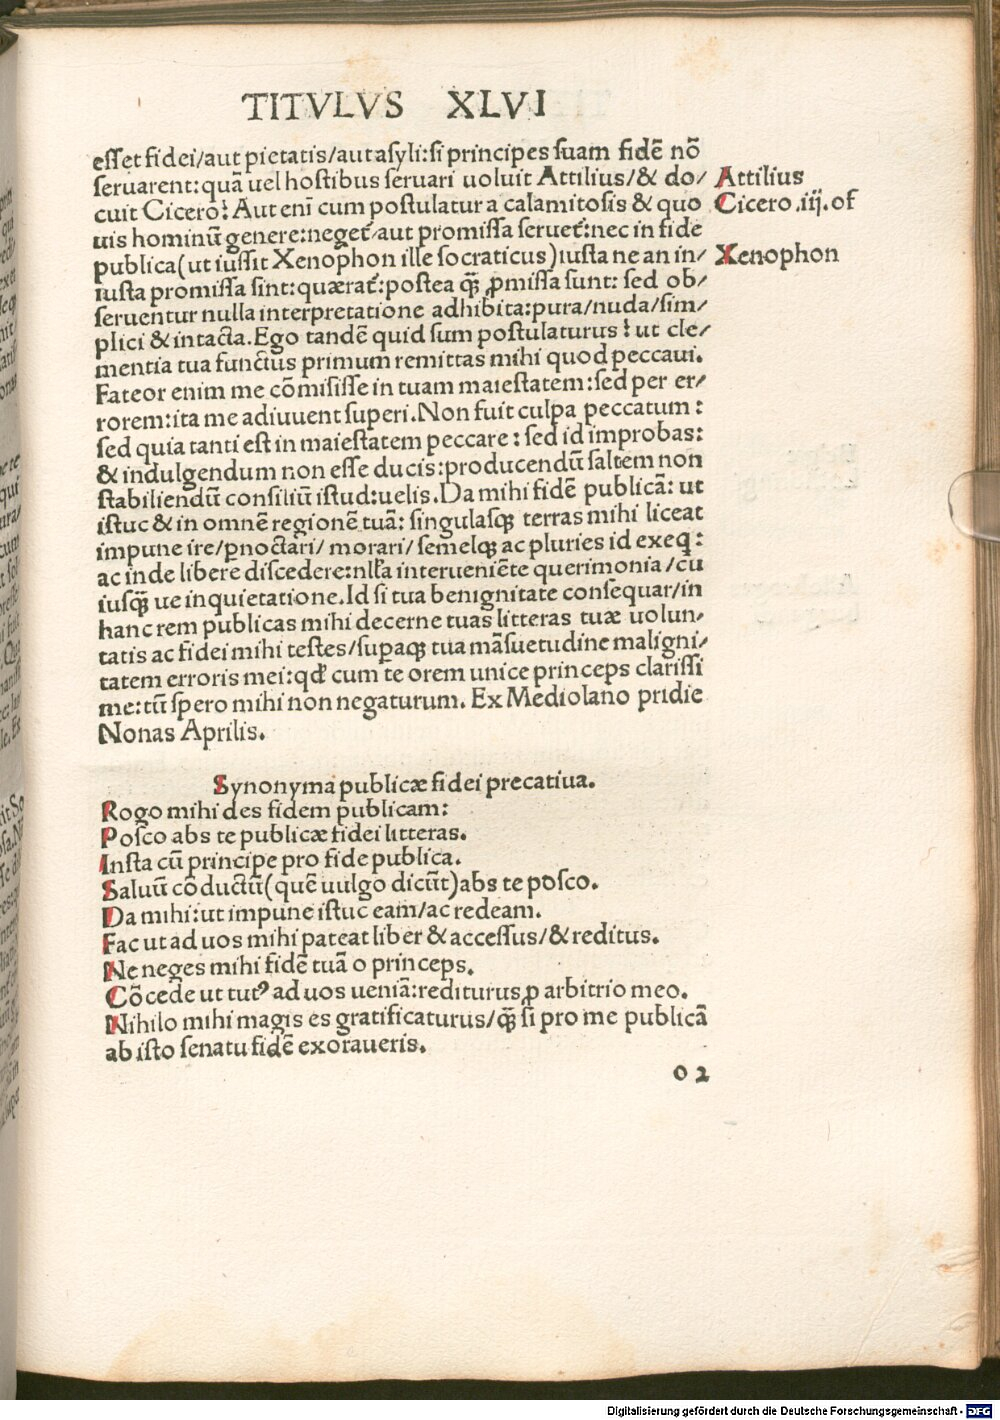 TITVLVS XLVI
esſet fidei/aut pietatis/aut asyli:si principes ſuam fidē nō
ſeruarent:quā uel hoſtibus ſeruari uoluit Attilius/& do/
Attilius
cuit Cicero? Aut eni cum poſtulatur a calamitoſis & quo
Cicero .iij. of
uis hominū genere:neget/aut promiſſa ſeruet:nec in fide
publica(ut iuſſit Xenophon ille ſocraticus)iuſta ne an in/
Xenophon
iuſta promiſſa ſint:quærat:poſtea qꝫ ꝓmiſſa ſunt: ſed ob/
ſeruentur nulla interpretatione adhibita:pura/nuda/ſim/
plici & intacta.Ego tandē quid ſum poſtulaturus? ut cle/
mentia tua functus primum remittas mihi quod peccaui.
Fateor enim me cōmiſiſſe in tuam maieſtatem:ſed per er/
rorem:ita me adiuuent ſuperi.Non fuit culpa peccatum:
ſed quia tanti eſt in maieſtatem peccare: ſed id improbas:
& indulgendum non eſſe ducis:producendū ſaltem non
ſtabiliendū conſiliū iſtud:uelis.Da mihi fidē publicā: ut
iſtuc & in omnē regionē tuā: ſingulaſqꝫ terras mihi liceat
impune ire/pnoctari/ morari/ ſemelqꝫ ac pluries id exeq:
ac inde libere diſcedere:nlla interueniēte querimonia/cu
iuſqꝫ ue inquietatione.Id ſi tua benignitate conſequar/in
hanc rem publicas mihi decerne tuas litteras tuæ uolun/
tatis ac fidei mihi teſtes/ſupaqꝫ tua māſuetudine maligni/
tatem erroris mei:qd cum te orem unice princeps clariſſi
me:tū ſpero mihi non negaturum. Ex Mediolano pridie
Nonas Aprilis.
Synonyma publicæ fidei precatiua.
Rogo mihi des fidem publicam:
Poſco abs te publicæ fidei litteras.
Inſta cū principe pro fide publica.
Saluū cō ductū(quē uulgo dicūt)abs te poſco.
Da mihi:ut impune iſtuc eam/ac redeam.
Fac ut ad uos mihi pateat liber & acceſſus/& reditus.
Ne neges mihi fidē tuā o princeps.
Cōcede ut tutꝰ ad uos ueniā:rediturus ꝓ arbitrio meo.
Nihilo mihi magis es gratificaturus/qꝫ ſi pro me publicā
ab iſto ſenatu fidē exoraueris.
o 2
Digitalisierung gefördert durch die Deutsche Forschungsgemeinschaft - DFG